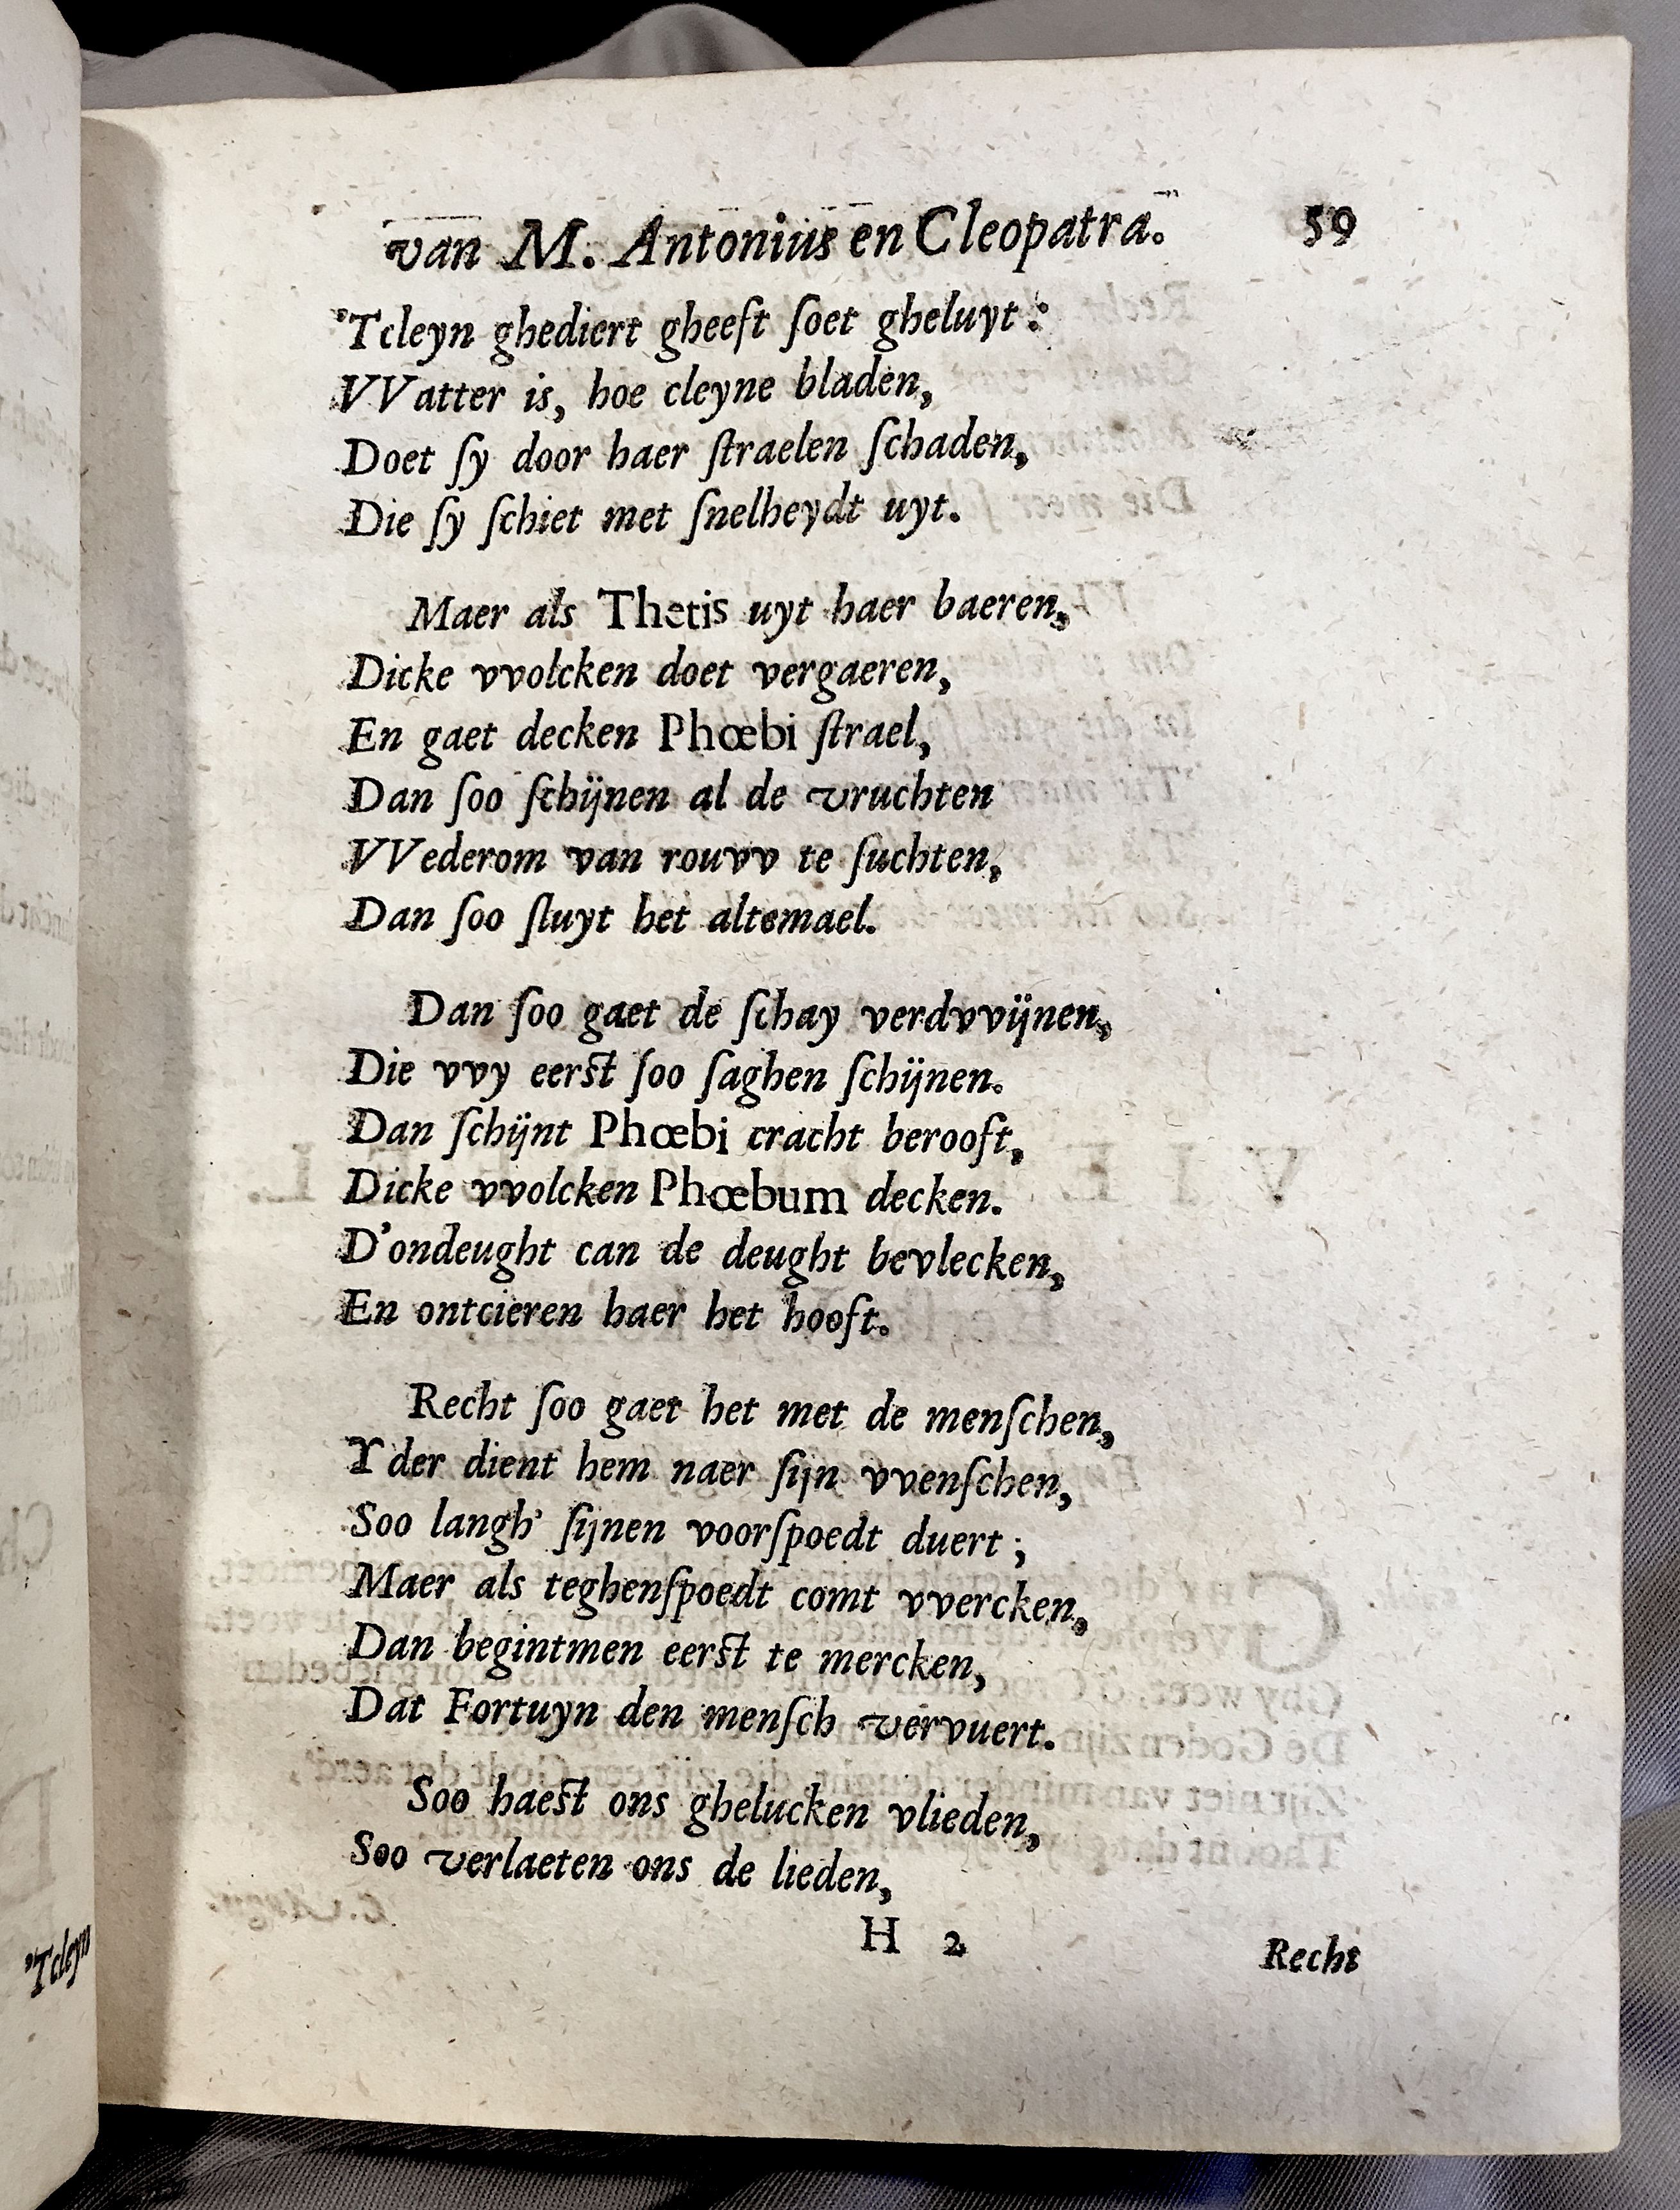 van M. Antonius en Cleopatra. 59
'Tcleyn ghediert gheeft ſoet gheluyt:
VVatter is, hoe cleyne bladen,
Doet ſy door haer ſtraelen ſchaden,
Die ſy ſchiet met ſnelheydt uyt.
Maer als Thetis uyt haer baeren,
Dicke vvolcken doet vergaeren,
En gaet decken Phœbi ſtrael,
Dan ſoo ſchijnen al de vruchten
VVederom van rouvv te ſuchten,
Dan ſoo ſluyt het altemael.
Dan ſoo gaet de ſchay verdvvijnen,
Die vvy eerſt ſoo ſaghen ſchijnen.
Dan ſchijnt Phœbi cracht berooft,
Dicke vvolcken Phœbum decken.
D'ondeught can de deught bevlecken,
En ontcieren haer het hooft.
Recht ſoo gaet het met de menſchen,
Yder dient hem naer ſijn vvenſchen,
Soo langh' ſijnen voorſpoedt duert;
Maer als teghenſpoedt comt vvercken,
Dan begintmen eerſt te mercken,
Dat Fortuyn den menſch vervuert.
Soo haeſt ons ghelucken vlieden,
Soo verlaeten ons de lieden,
H 2
Recht
'Tcleyn